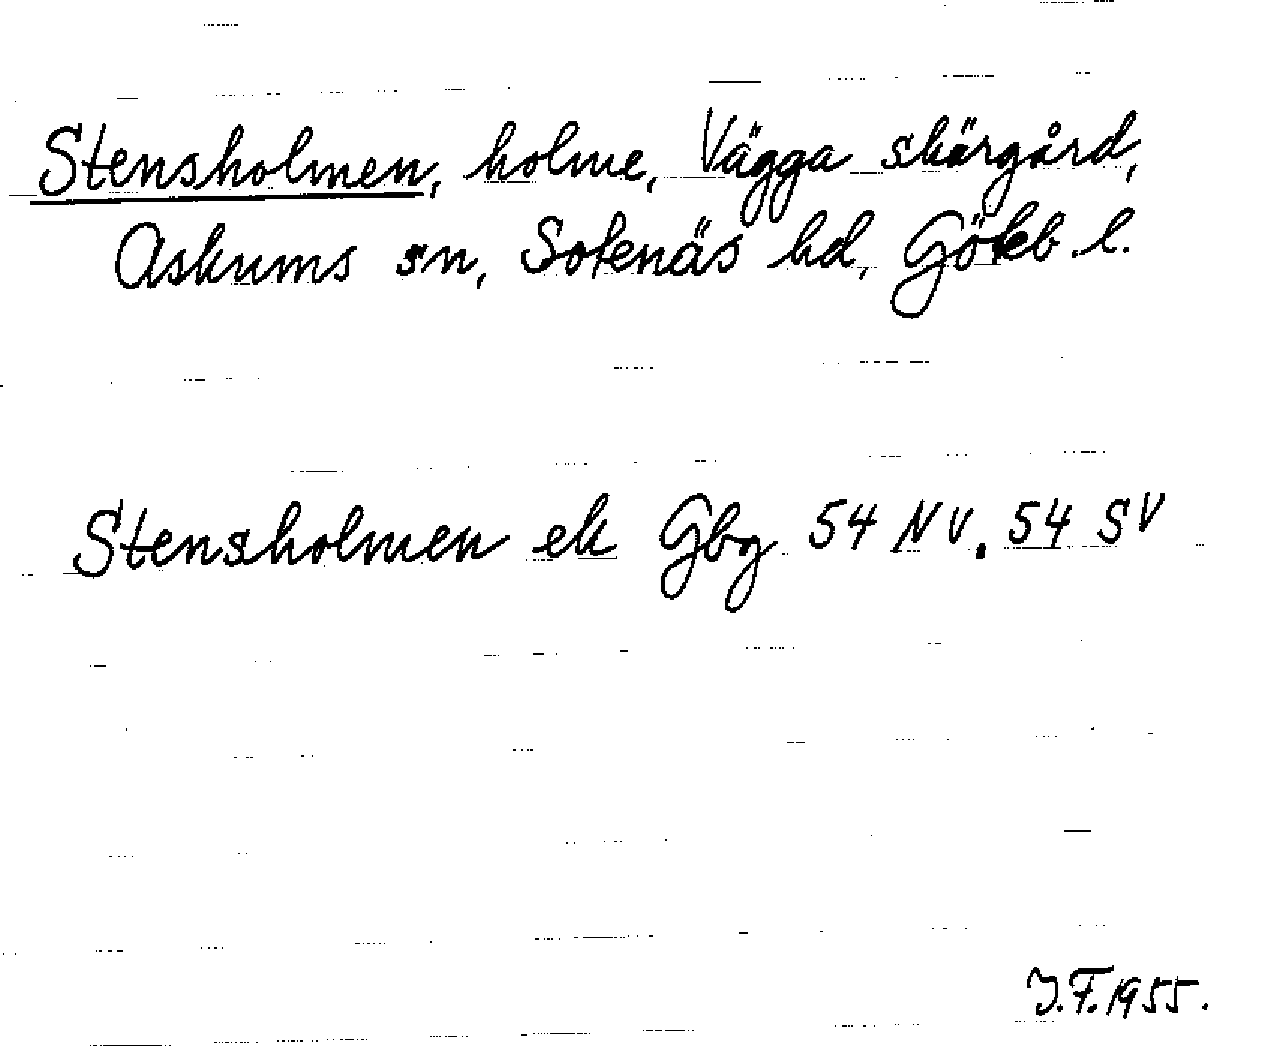 Stensholmen, holme, Vägga skärgård,
Askums sn, Sotenäs hd, Göteb. l.
Stensholmen ek Gbg 54 NV. 54 SV
J.F. 1955.